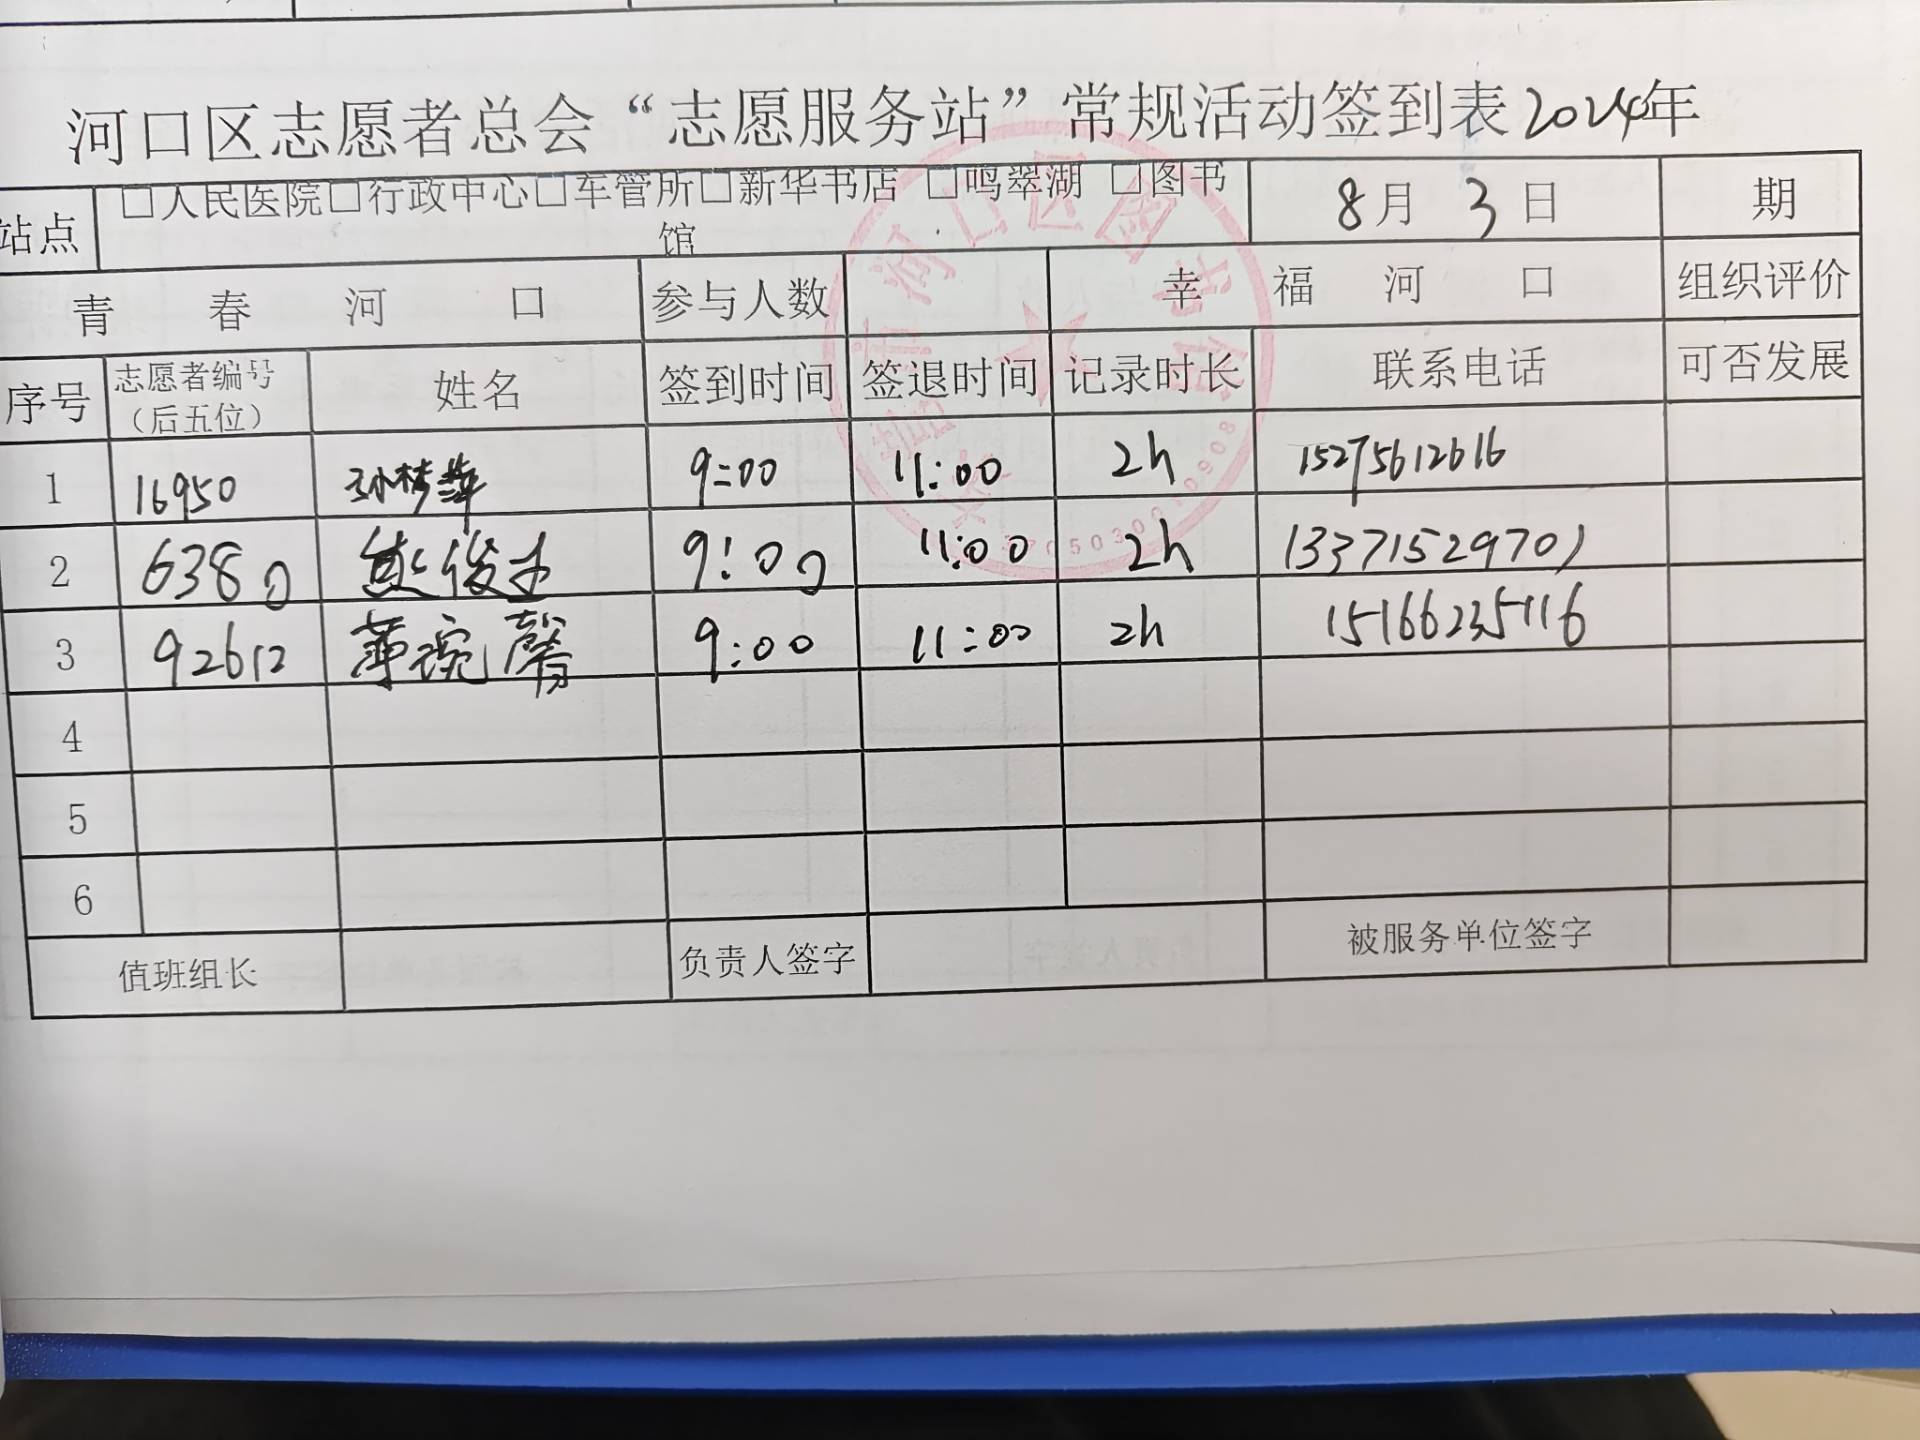 河口区志愿者总会“志愿服务站”常规活动签到表2024年
站点 □人民医院□行政中心□车管所□新华书店 □鸣翠湖 □图书馆 8月 3日 期
青 春 河 口 参与人数 幸 福 河 口 组织评价
序号 志愿者编号（后五位） 姓名 签到时间 签退时间 记录时长 联系电话 可否发展
1 16950 孙梦萍 9:00 11:00 2h 15275612616
2 6380 9:00 11:00 2h 13371529701
3 92612 薄琬馨 9:00 11:00 2h 15166235116
4
5
6
值班组长 负责人签字 被服务单位签字